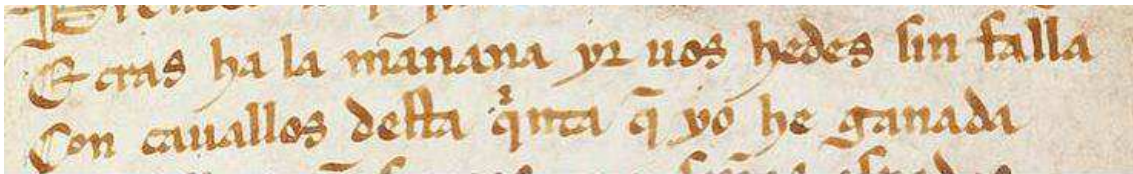 E cras ha la mañana yr uos hedes sin falla
Con cauallos desta qͥnta q̄ yo he ganada